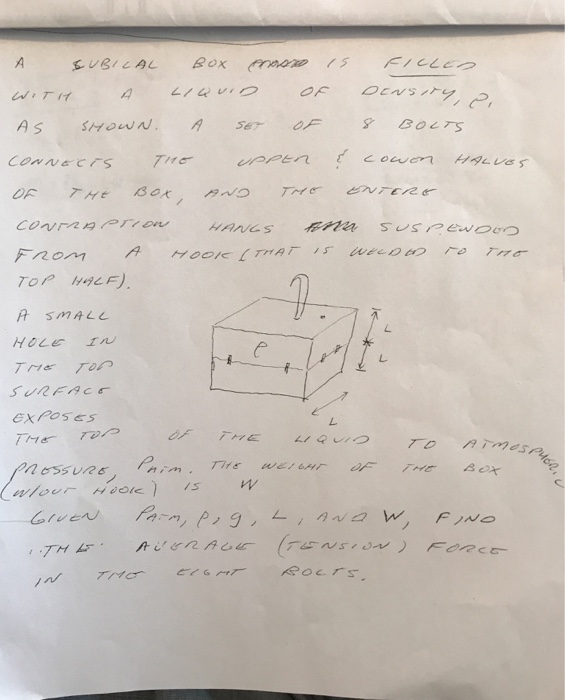 A CUBICAL BOX IS FILLED
WITH A LIQUID OF DENSITY, ρ,
AS SHOWN. A SET OF 8 BOLTS
CONNECTS THE UPPER & LOWER HALVES
OF THE BOX, AND THE ENTERE
CONTRAPTION HANGS SUSPENDED
FROM A HOOK (THAT IS WELDED TO THE
TOP HALF).
A SMALL
HOLE IN
THE TOP
SURFACE
EXPOSES
THE TOP OF THE LIQUID TO ATMOSPHERIC
PRESSURE, PATM. THE WEIGHT OF THE BOX
(W/OUT HOOK) IS W
GIVEN PATM, ρ, g, L, AND W, FIND
THE AVERAGE (TENSION) FORCE
IN THE EIGHT BOLTS.
ρ
L
L
L